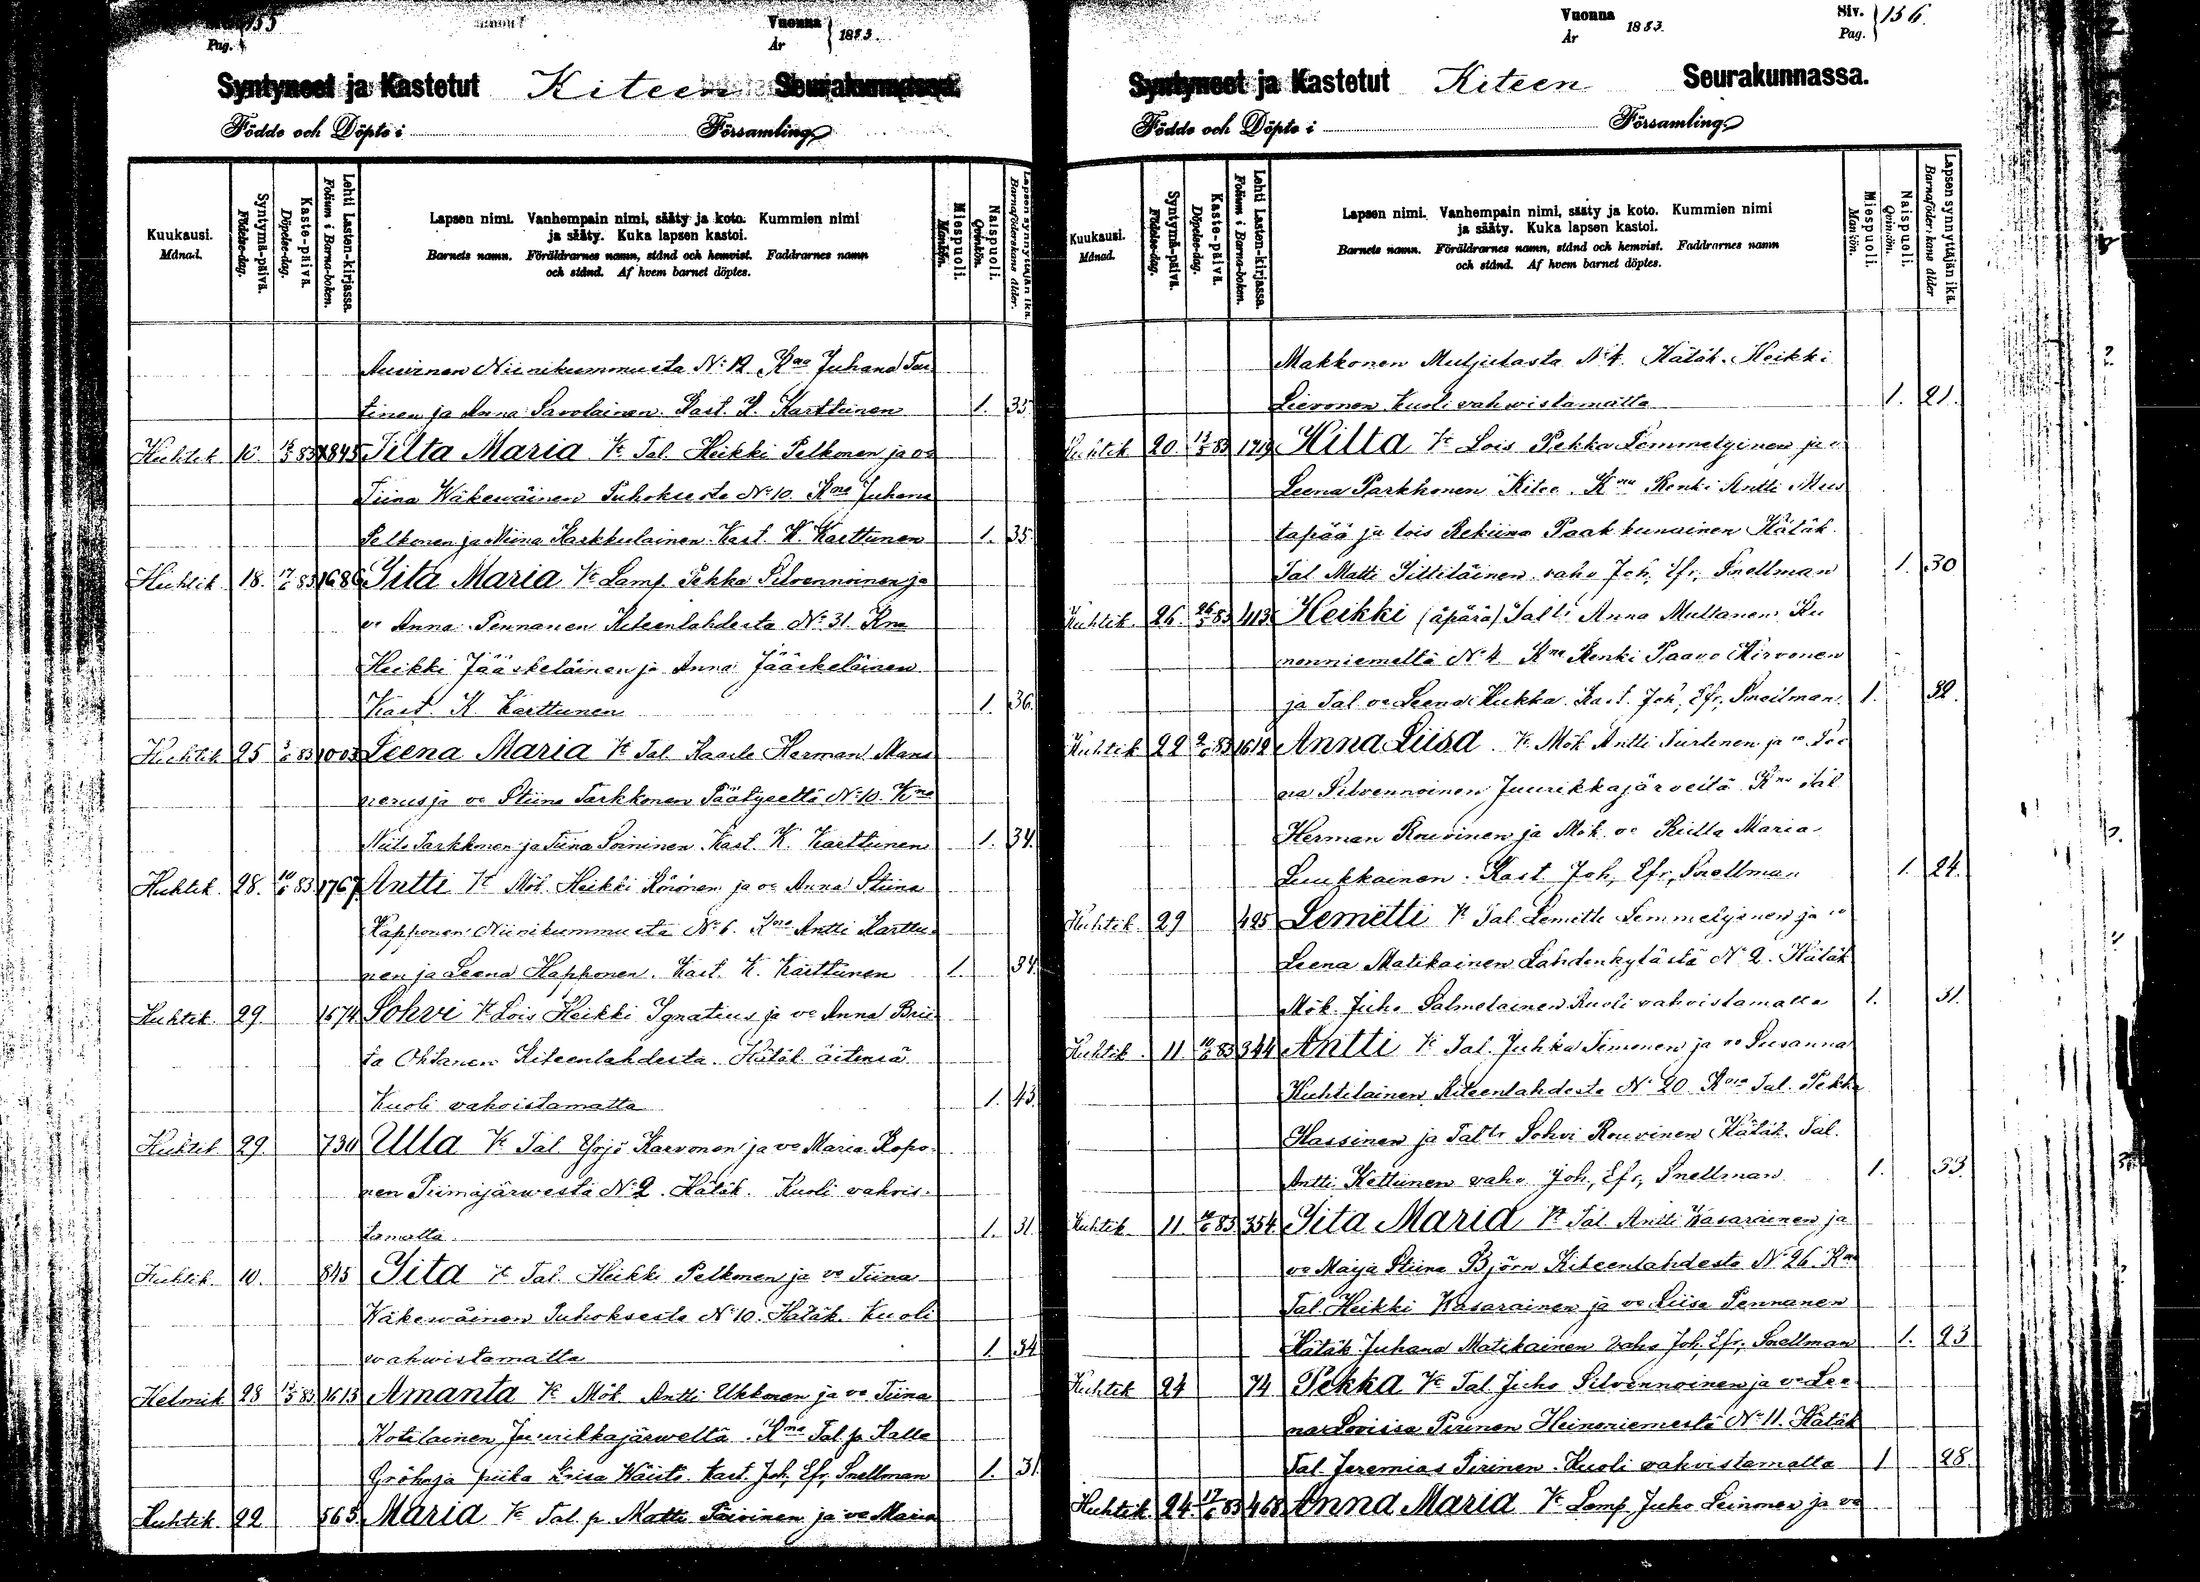 155
Pag.
Vuonna
År
1883.
Syntyneet ja Kastetut Kiteen Seurakunnassa.
Födde och Döpte i Församling
Kuukausi.
Månad.
Syntymä-päivä.
Födelse-dag.
Kaste-päivä.
Döpelse-dag.
Lehti Lasten-kirjassa.
Folium i Barna-boken.
Lapsen nimi. Vanhempain nimi, sääty ja koto. Kummien nimi
ja sääty. Kuka lapsen kastoi.
Barnets namn. Föräldrarnes namn, stånd och hemvist. Faddrarnes namn
och stånd. Af hvem barnet döptes.
Miespuoli.
Mankön.
Naispuoli.
Qvinkön.
Lapsen synnyttäjän ikä.
Barnaföderskans ålder.
Niinikummusta No 12 Kna Juhana Tur
tinen ja Anna Savolainen. Kast. K. Karttunen 1. 35
Huhtik 10. 83 1845 Tilta Maria Vt Tal. Heikki Pelkonen ja vo
Tiina Wäkewäinen Puhoksesta No 10. Kna Juhana
Pelkonen ja Miina Karkkulainen. Kast. K. Karttunen 1. 35
Huhtik. 18. 17/6 83 1686 Iita Maria Vt Lamp. Pekka Silvennoinen ja
vo Anna Pennanen Kiteenlahdesta No 31. Kna
Heikki Jääskeläinen ja Anna Jääskeläinen
Kast. K. Karttunen 1. 36.
Huhtik 25 83 1003 Leena Maria Vt Tal. Kaarle Herman Mans
nerus ja vo Stiina Tarkkonen Päätyeeltä No 10. Kna
Niilo Tarkkonen ja Tiina Soininen. Kast. K. Karttunen 1. 34.
Huhtik. 28. 10/6 83 1767 Antti Vt Mök. Heikki Körönen ja vo Anna Stiina
Happonen Niinikummusta No 6. Kna Antti Karttu
nen ja Leena Happonen. Kast. K. Karttunen 1. 34.
Huhtik. 29. 1674 Sohvi Vt Lois Heikki Ignatius ja vo Anna Brii
ta Ohtanen Kiteenlahdesta. Hätäk. äitensä
Kuoli vahvistamatta 1. 43.
Huhtik 29. 730 Ulla Vt Tal Yrjö Karvonen ja vo Maria Kopo
nen Piimäjärwestä No 2. Hätäk. Kuoli vahvis
tamatta 1. 31.
Huhtik. 10. 845 Iita Vt Tal. Heikki Pelkonen ja vo Tiina
Wäkewäinen Puhoksesta No 10. Hätäk. Kuoli
vahwistamatta 1. 34
Helmik 28 83 1613 Amanta Vt Mök Antti Ukkonen ja vo Tiina
Kotilainen Juurikkajärweltä. Kna Tal. p. Kalle
Gröhn ja piika Kaisa Wäistö. Kast. Joh, Efr, Snellman 1. 31.
Huhtik. 22 563. Maria Vt Tal. p. Matti Päivinen ja vo Maria
Vuonna
År
1883.
Siv.
Pag.
156.
Syntyneet ja Kastetut Kiteen Seurakunnassa.
Födde och Döpte i Församling
Kuukausi.
Månad.
Syntymä-päivä.
Födelse-dag.
Kaste-päivä.
Döpelse-dag.
Lehti Lasten-kirjassa.
Folium i Barna-boken.
Lapsen nimi. Vanhempain nimi, sääty ja koto. Kummien nimi
ja sääty. Kuka lapsen kastoi.
Barnets namn. Föräldrarnes namn, stånd och hemvist. Faddrarnes namn
och stånd. Af hvem barnet döptes.
Miespuoli.
Mankön.
Naispuoli.
Qvinkön.
Lapsen synnyttäjän ikä.
Barnaföderskans ålder
Makkonen Mutjulasta No 4. Hätäk. Heikki
Lievonen Kuoli vahwistamatta 1. 21.
Huhtik 20. 13/5 83 1719 Hilta Vt Lois Pekka Lemmetyinen ja
Leena Parkkonen Kitee. Kna Renki Antti Mus
tapää ja lois Rekiina Paakkunainen Hätäk.
Tal Matti Siltiläinen vahv Joh, Efr, Snellman 1. 30
Huhtik. 26. 26/5 83 413 Heikki (äpärä) Tal tr Anna Multanen Ku
nonniemeltä No 4 Kna Renki Paavo Hirvonen
ja Tal vo Leena Kukka. Kast. Joh, Efr, Snellman. 1. 32.
Huhtik 22 83 1612 Anna Liisa Vt Mök Antti Turtinen ja vo
na Silvennoinen Juurikkajärveltä. Kna Tal
Herman Rouvinen ja Mök vo Riitta Maria
Luukkainen. Kast Joh, Efr, Snellman 1. 24.
Huhtik. 29 425 Lemetti Vt Tal. Lemetti Lemmetyinen ja vo
Leena Matikainen Lahdenkylästä No 2. Hätäk
Mök. Juho Salmelainen Kuoli vahvistamatta 1. 31.
Huhtik. 11 10/6 83 344 Antti Vt Tal. Juhka Simonen ja vo Susanna
Huhtilainen Kiteenlahdesta No 20. Kna Tal. Pekka
Hassinen ja Tal tr Sohvi Rouvinen Hätäk. Tal.
Antti Kettunen vahv Joh, Efr, Snellman 1. 33.
Huhtik. 11. 83 354. Iita Maria Vt Tal Antti Kasarainen ja
vo Maija Stiina Björn Kiteenlahdesta No 26. Kna
Tal. Heikki Kasarainen ja vo Liisa Pennanen
Hätäk Juhana Matikainen vahv Joh, Efr, Snellman 1. 23
Huhtik 24 74 Pekka Vt Tal Juho Silvennoinen ja vo Lee
na Loviisa Pirinen Heinoniemestä No 11. Hätäk
Tal. Jeremias Pirinen. Kuoli vahvistamatta 1 28.
Huhtik. 24. 17/6 83 468 Anna Maria Vt Lamp Juho Leinonen ja vo